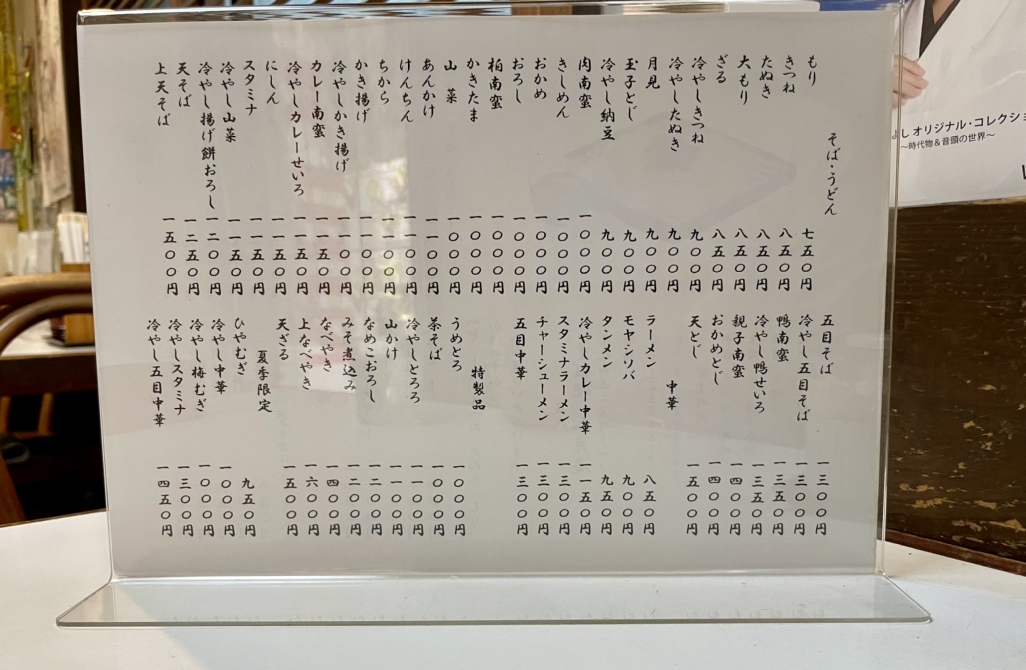 そば・うどん
もり 七五〇円
きつね 八五〇円
たぬき 八五〇円
大もり 八五〇円
ざる 八五〇円
冷やしきつね 九〇〇円
冷やしたぬき 九〇〇円
月見 九〇〇円
玉子とじ 九〇〇円
冷やし納豆 九〇〇円
肉南蛮 一〇〇〇円
きしめん 一〇〇〇円
おかめ 一〇〇〇円
おろし 一〇〇〇円
柏南蛮 一〇〇〇円
かきたま 一〇〇〇円
山菜 一〇〇〇円
あんかけ 一一〇〇円
けんちん 一一〇〇円
ちから 一一〇〇円
かき揚げ 一一〇〇円
冷やしかき揚げ 一一〇〇円
カレー南蛮 一一五〇円
冷やしカレーせいろ 一一五〇円
にしん 一一五〇円
スタミナ 一一五〇円
冷やし山菜 一一五〇円
冷やし揚げ餅おろし 一二〇〇円
天そば 一二五〇円
上天そば 一五〇〇円
五目そば 一三〇〇円
冷やし五目そば 一三〇〇円
鴨南蛮 一三五〇円
冷やし鴨せいろ 一三五〇円
親子南蛮 一四〇〇円
おかめとじ 一四〇〇円
天とじ 一五〇〇円
中華
ラーメン 八五〇円
モヤシソバ 九〇〇円
タンメン 九五〇円
冷やしカレー中華 一一五〇円
スタミナラーメン 一三〇〇円
チャーシューメン 一三〇〇円
五目中華 一三〇〇円
特製品
うめとろ 一〇〇〇円
茶そば 一〇〇〇円
冷やしとろろ 一一〇〇円
山かけ 一一〇〇円
なめこおろし 一二〇〇円
みそ煮込み 一二〇〇円
なべやき 一四〇〇円
上なべやき 一六〇〇円
天ざる 一五〇〇円
夏季限定
ひやむぎ 九五〇円
冷やし中華 一〇〇〇円
冷やし梅むぎ 一〇〇〇円
冷やしスタミナ 一三〇〇円
冷やし五目中華 一四五〇円
よし オリジナル・コレクショ
〜時代物＆音頭の世界〜